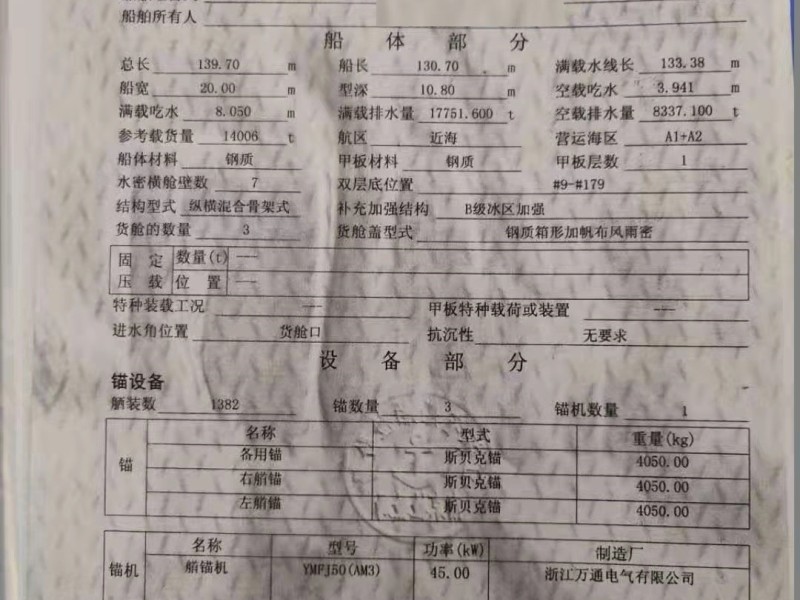 船舶所有人
船 体 部 分
总长 139.70 m 船长 130.70 m 满载水线长 133.38 m
船宽 20.00 m 型深 10.80 m 空载吃水 3.941 m
满载吃水 8.050 m 满载排水量 17751.600 t 空载排水量 8337.100 t
参考载货量 14006 t 航区 近海 营运海区 A1+A2
船体材料 钢质 甲板材料 钢质 甲板层数 1
水密横舱壁数 7 双层底位置 #9-#179
结构型式 纵横混合骨架式 补充加强结构 B级冰区加强
货舱的数量 3 货舱盖型式 钢质箱形加帆布风雨密
固定 数量(t) ---
压载 位置 ---
特种装载工况 --- 甲板特种载荷或装置 ---
进水角位置 货舱口 抗沉性 无要求
设 备 部 分
锚设备
舾装数 1382 锚数量 3 锚机数量 1
锚 名称 型式 重量(kg)
备用锚 斯贝克锚 4050.00
右艏锚 斯贝克锚 4050.00
左艏锚 斯贝克锚 4050.00
锚机 名称 型号 功率(kW) 制造厂
艏锚机 YMFJ50(AM3) 45.00 浙江万通电气有限公司